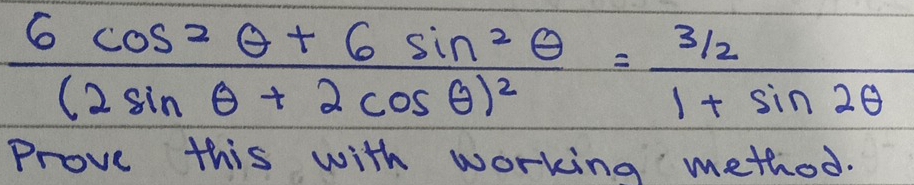 6 cos² θ + 6 sin² θ / (2 sin θ + 2 cos θ)² = 3/2 / 1 + sin 2θ
Prove this with working method.